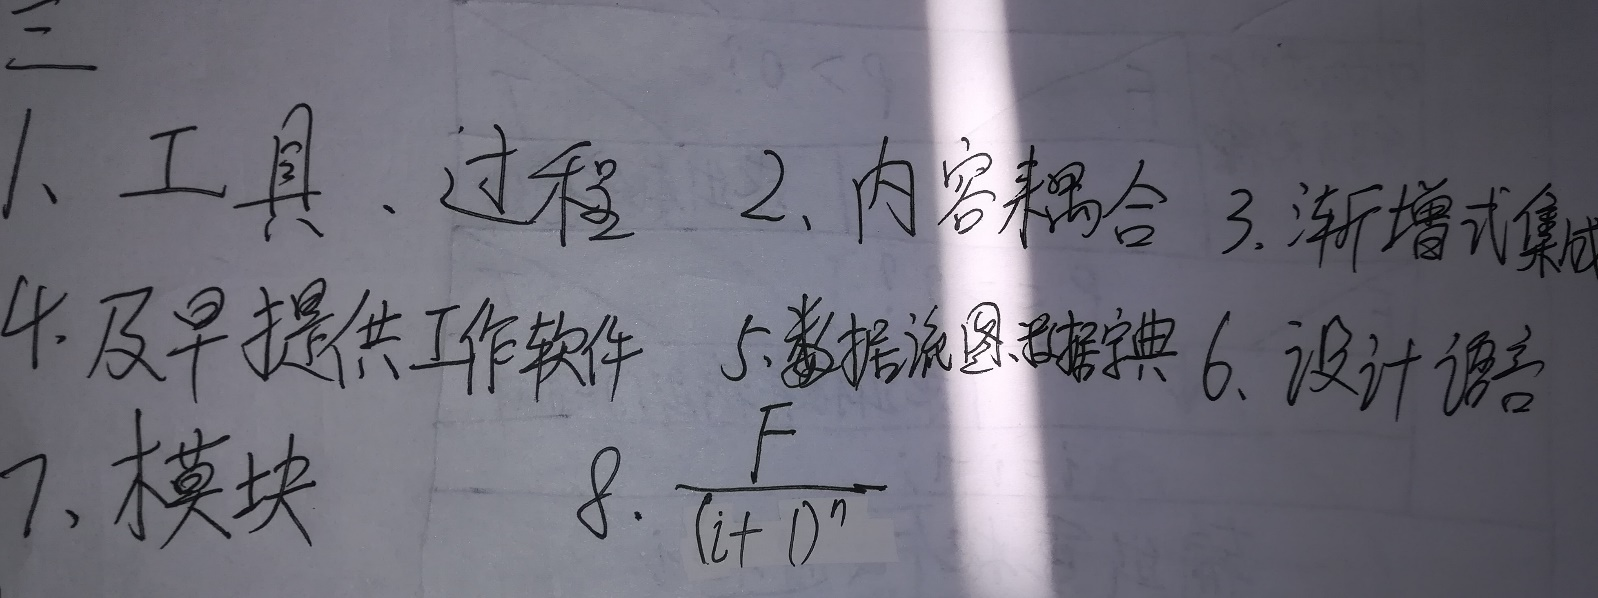 三
1、工具、过程 2、内容耦合 3.渐增式集成
4.及早提供工作软件 5.数据流图、数据字典 6、设计语言
7、模块 8. F/(i+1)^n